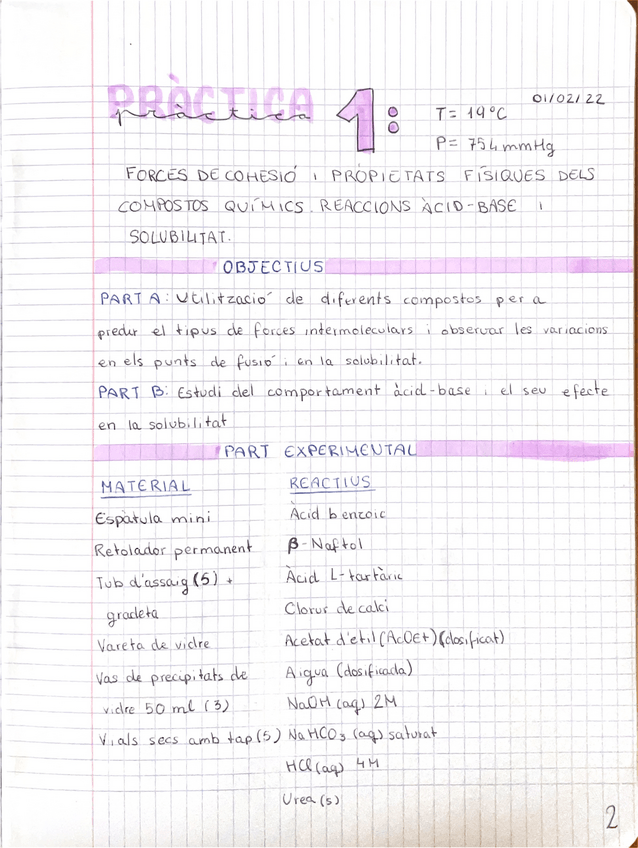 PRÀCTICA
pràctica 1:
01/02/22
T= 19°C
P= 754 mmHg
FORCES DE COHESIÓ I PROPIETATS FÍSIQUES DELS
COMPOSTOS QUÍMICS. REACCIONS ÀCID-BASE I
SOLUBILITAT.
OBJECTIUS
PART A: Utilització de diferents compostos per a
predir el tipus de forces intermoleculars i observar les variacions
en els punts de fusió i en la solubilitat.
PART B: Estudi del comportament àcid-base i el seu efecte
en la solubilitat
PART EXPERIMENTAL
MATERIAL
Espàtula mini
Retolador permanent
Tub d'assaig (5) +
gradeta
Vareta de vidre
Vas de precipitats de
vidre 50 ml (3)
Vials secs amb tap (5)
REACTIUS
Àcid benzoic
β-Naftol
Àcid L-tartàric
Clorur de calci
Acetat d'etil (AcOEt) (dosificat)
Aigua (dosificada)
NaOH (aq) 2M
NaHCO3 (aq) saturat
HCl (aq) 4M
Urea (s)
2